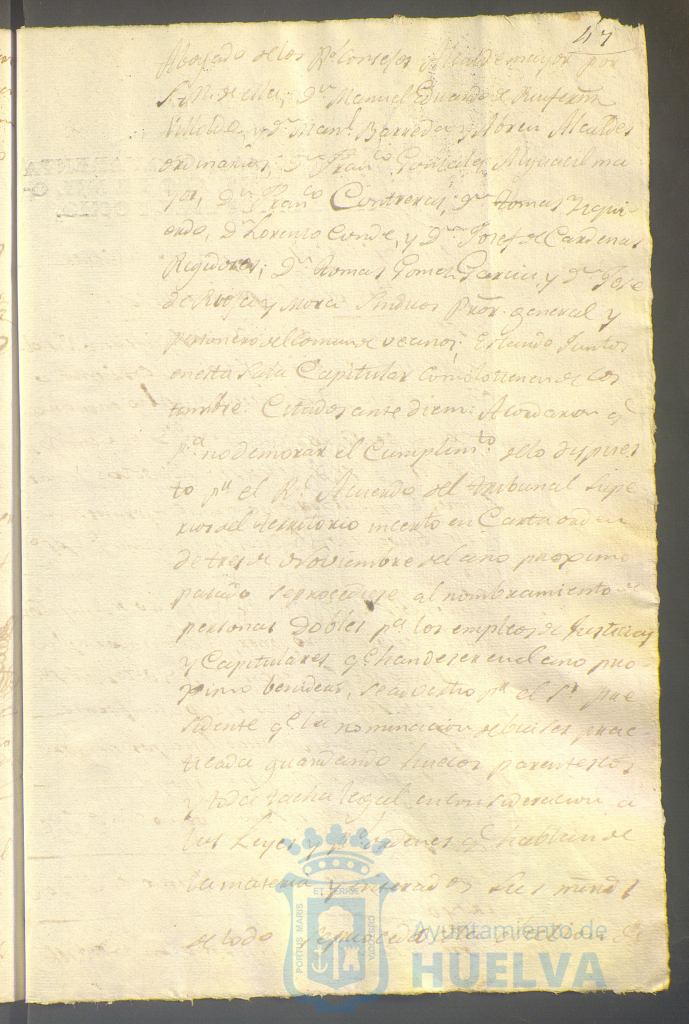 47
Abogado de los Rs. Consejos Alcalde mayor por
S. M. de ella; Dn. Manuel Eduardo de
Villalda, y Dn. Manl. Barreda y Abreu Alcaldes
ordinarios; Dn. Franco. Gonzales Alguacil ma-
yor, Dn. Franco. Contreras; Dn. Tomas Izqui-
erdo, Dn. Lorenzo Conde, y Dn. Josef de Cardenas
Regidores; Dn. Tomas Gomez Garcia, y Dn. Jose
de y Mora Sindicos Pror. general y
personero del comun de vecinos; Estando Juntos
en esta Sala Capitular como lo tienen de cos-
tumbre. Citados ante diem: Acordaron qe.
pa. no demorar el Cumplimto. de lo dispues-
to pr. el Rl. Acuerdo del tribunal Supe-
rior del territorio incerto en Carta orden
de tres de Noviembre del año proximo
pasado se procediese al nombramiento de
personas Dobles pa. los empleos de Justicias
y Capitulares qe. han de ser en el año pro-
ximo benidero, se advirtio pr. el Sr. pre-
sidente qe. la nominacion debia ser prac-
ticada guardando huecos parentescos
y toda tacha legal en consideracion a
las Leyes y Rs. ordenes qe. hablan de
la materia y enterados Sus mrds.
de todo se procedio a la eleccion de
PORTUS MARIS ET TERRAE CUSTODIA
Ayuntamiento de
HUELVA